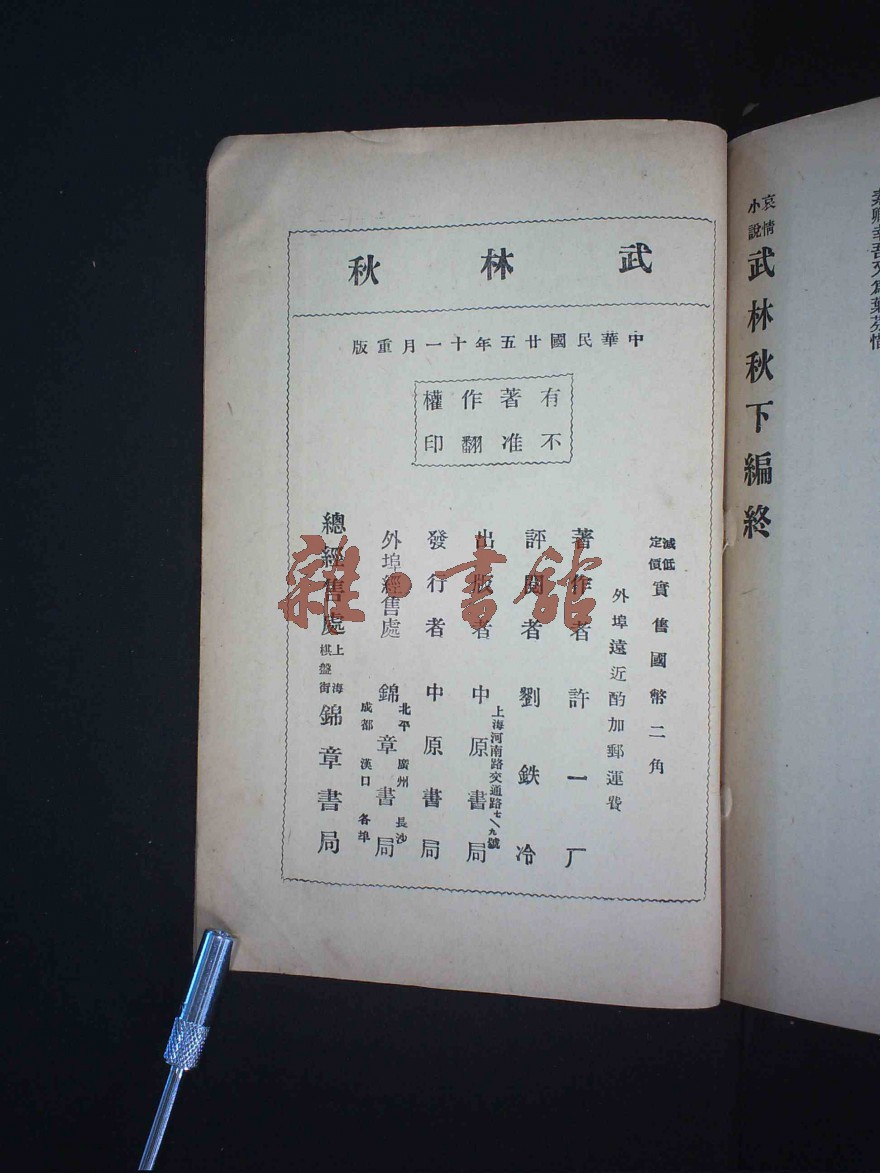 哀情小說
武林秋下編終
武林秋
中華民國廿五年十一月重版
有著作權
不准翻印
減低定價
實售國幣二角
外埠遠近酌加郵運費
著作者 許一厂
評閱者 劉鉄冷
出版者 中原書局
上海河南路交通路七/九號
發行者 中原書局
外埠經售處 錦章書局
北平 廣州 長沙
成都 漢口 各埠
總經售處 上海棋盤街 錦章書局
雜·書館